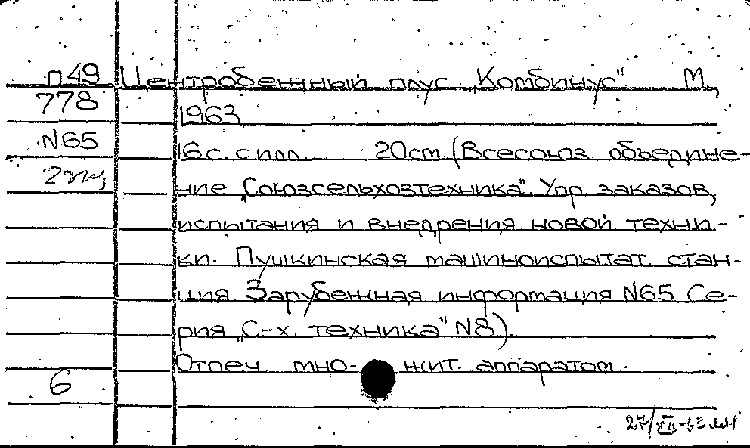 п49 Центробежный плуг „Комбинус" М.,
778 1963
N65 16с. с илл. 20см (Всесоюз объедине-
ние „Союзсельхозтехника". Упр. заказов,
испытания и внедрения новой техни-
ки. Пушкинская машиноиспытат. стан-
ция Зарубежная информация N65 Се-
рия „С-х. техника" N8).
Отпеч мно- жит. аппаратом.
6